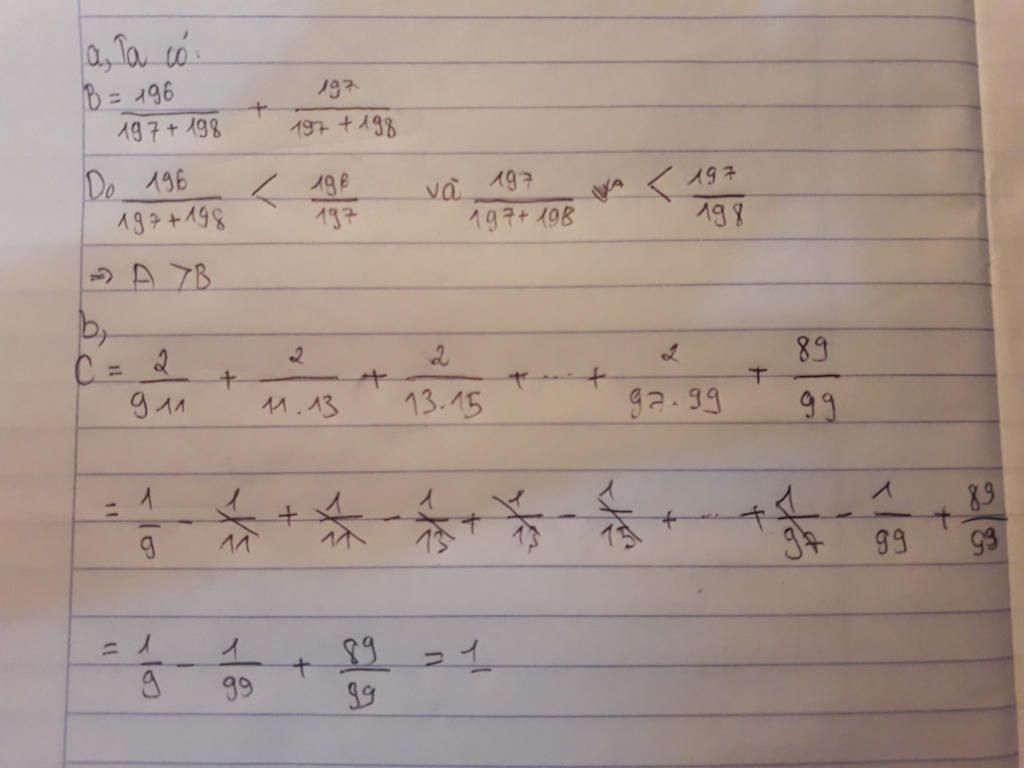 a, Ta có:
B = 196/(197 + 198) + 197/(197 + 198)
Do 196/(197 + 198) < 196/197 và 197/(197 + 198) < 197/198
=> A > B
b,
C = 2/(9.11) + 2/(11.13) + 2/(13.15) + ... + 2/(97.99) + 89/99
= 1/9 - 1/11 + 1/11 - 1/13 + 1/13 - 1/15 + ... + 1/97 - 1/99 + 89/99
= 1/9 - 1/99 + 89/99 = 1